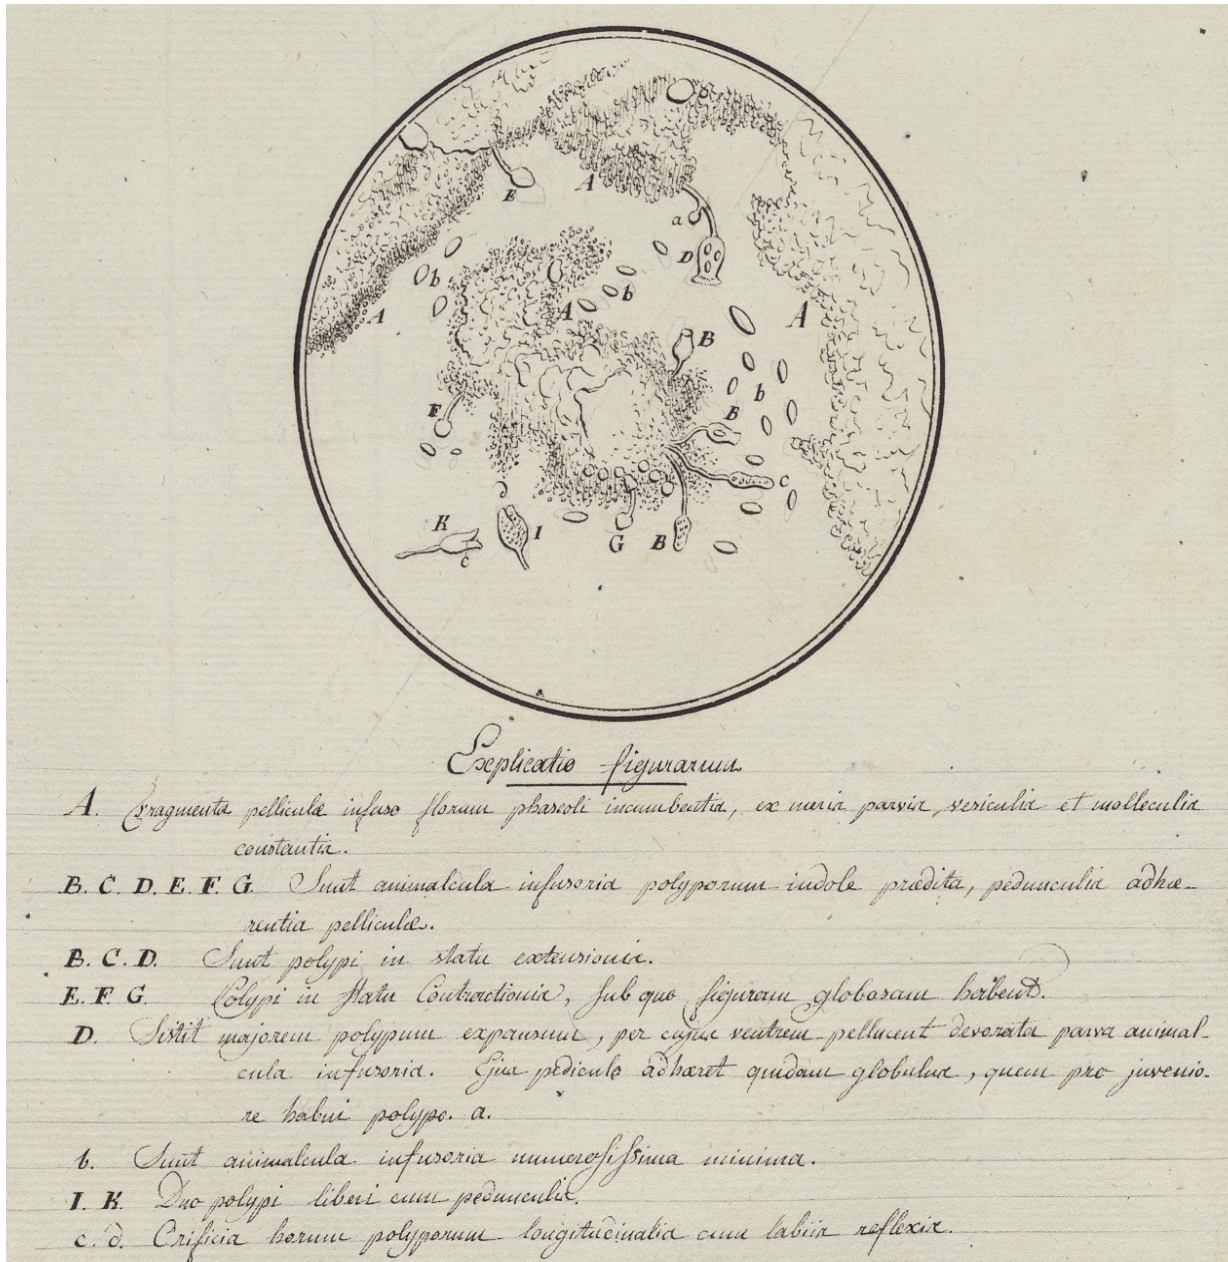 E
A
a
D
b
A
b
A
A
B
b
F
B
c
d
K
I
G
B
c
Explicatio figurarum
A. Fragmenta pelliculæ infuso florum phaseoli incumbentia, ex meris parvis, vesiculis et molleculis
constantia.
B. C. D. E. F. G. Sunt animalcula infusoria polyporum indole prædita, pedunculis adhæ-
rentia pelliculæ.
B. C. D. Sunt polypi in statu extensionis.
E. F. G. Polypi in statu Contractionis, sub quo figuram globosam habent.
D. Sistit majorem polypum expansum, per cujus ventrem pellucent devorata parva animal-
cula infusoria. Ejus pediculo adhæret quidam globulus, quem pro junio-
re habui polypo. a.
b. Sunt animalcula infusoria numerosissima minima.
I. K. Duo polypi liberi cum pedunculis.
c. d. Orificia horum polyporum longitudinalia cum labiis reflexis.